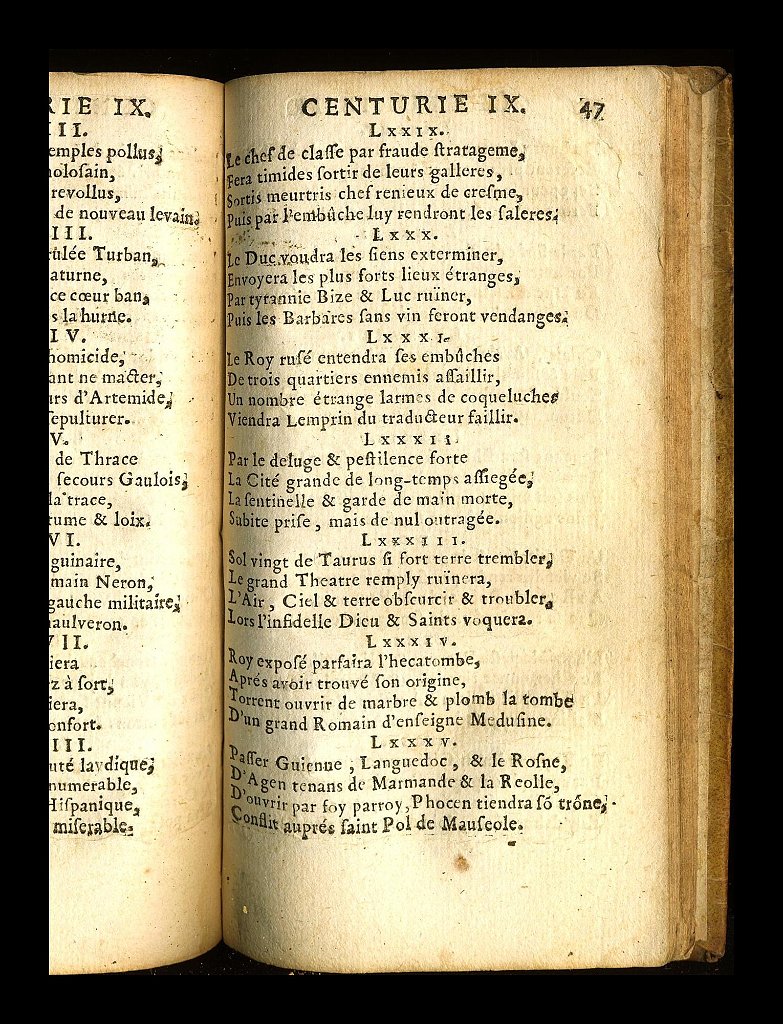 RIE IX.
III.
emples pollus,
holosain,
revollus,
de nouveau levain.
III.
rulée Turban,
aturne,
ce cœur ban,
s la hurne.
IV.
homicide,
ant ne macter,
urs d'Artemide,
sepulturer.
V.
de Thrace
secours Gaulois,
la trace,
tume & loix.
VI.
guinaire,
main Neron,
gauche militaire,
aulveron.
VII.
iera
z à sort,
iera,
onfort.
III.
uté laydique,
numerable,
Hispanique,
miserable.
CENTURIE IX. 47
LXXIX.
Le chef de classe par fraude stratageme,
Fera timides sortir de leurs galleres,
Sortis meurtris chef renieux de cresme,
Puis par l'embûche luy rendront les saleres.
LXXX.
Le Duc voudra les siens exterminer,
Envoyera les plus forts lieux étranges,
Par tyrannie Bize & Luc ruïner,
Puis les Barbares sans vin feront vendanges.
LXXXI.
Le Roy rusé entendra ses embûches
De trois quartiers ennemis assaillir,
Un nombre étrange larmes de coqueluches
Viendra Lemprin du traducteur faillir.
LXXXII.
Par le deluge & pestilence forte
La Cité grande de long-temps assiegée,
La sentinelle & garde de main morte,
Subite prise, mais de nul outragée.
LXXXIII.
Sol vingt de Taurus si fort terre trembler,
Le grand Theatre remply ruïnera,
L'Air, Ciel & terre obscurcir & troubler,
Lors l'infidelle Dieu & Saints voquera.
LXXXIV.
Roy exposé parfaira l'hecatombe,
Aprés avoir trouvé son origine,
Torrent ouvrir de marbre & plomb la tombe
D'un grand Romain d'enseigne Medusine.
LXXXV.
Passer Guienne, Languedoc, & le Rosne,
D'Agen tenans de Marmande & la Reolle,
D'ouvrir par foy parroy, Phocen tiendra sõ trône,
Conflit auprés saint Pol de Mauseole.